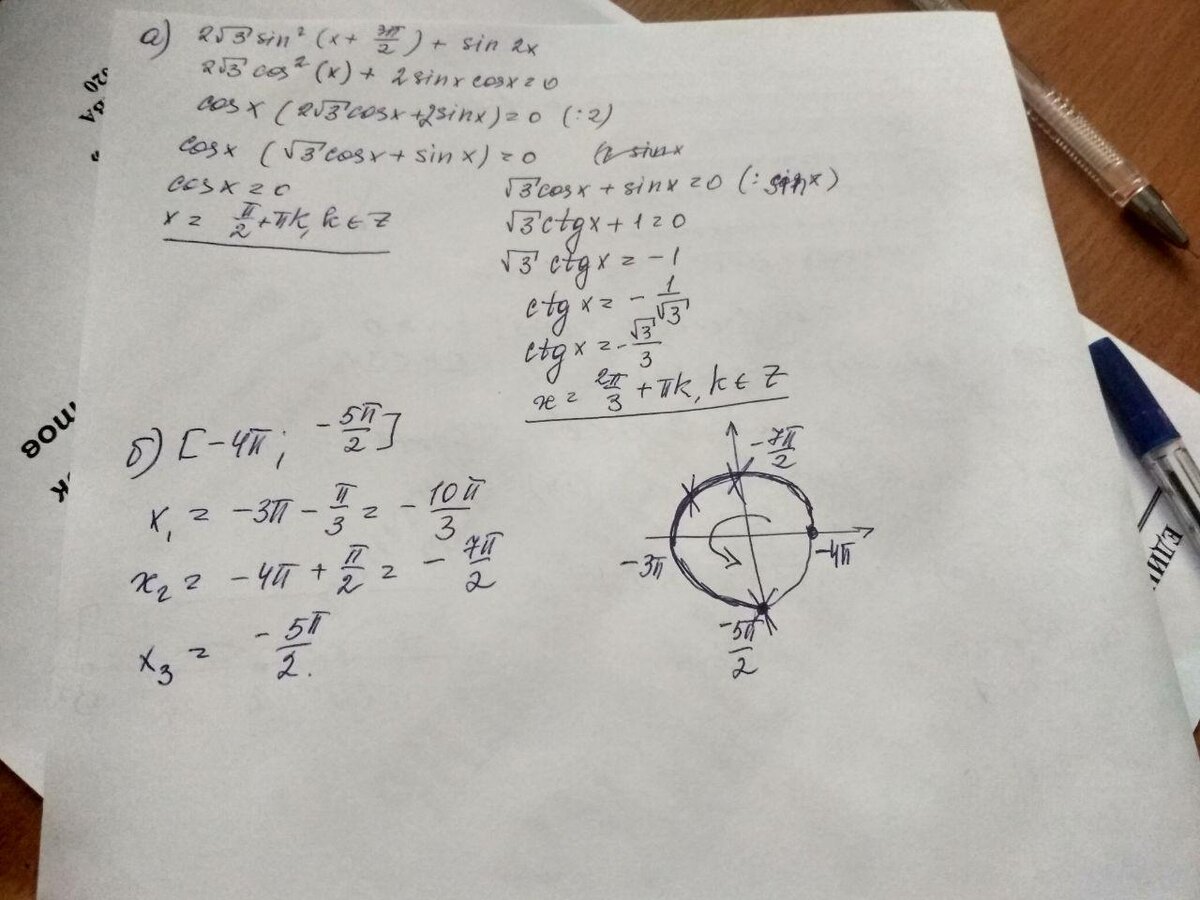 а) 2√3 sin² (x + 3π/2) + sin 2x
2√3 cos² (x) + 2 sin x cos x = 0
cos x (2√3 cos x + 2 sin x) = 0 (:2)
cos x (√3 cos x + sin x) = 0
cos x = 0
x = π/2 + πk, k ∈ Z
√3 cos x + sin x = 0 (: sin x)
√3 ctg x + 1 = 0
√3 ctg x = -1
ctg x = - 1/√3
ctg x = - √3/3
x = 2π/3 + πk, k ∈ Z
б) [-4π; -5π/2]
x₁ = -3π - π/3 = - 10π/3
x₂ = -4π + π/2 = - 7π/2
x₃ = - 5π/2.
-7π/2
-3π
-4π
-5π/2
020
ЕДИ